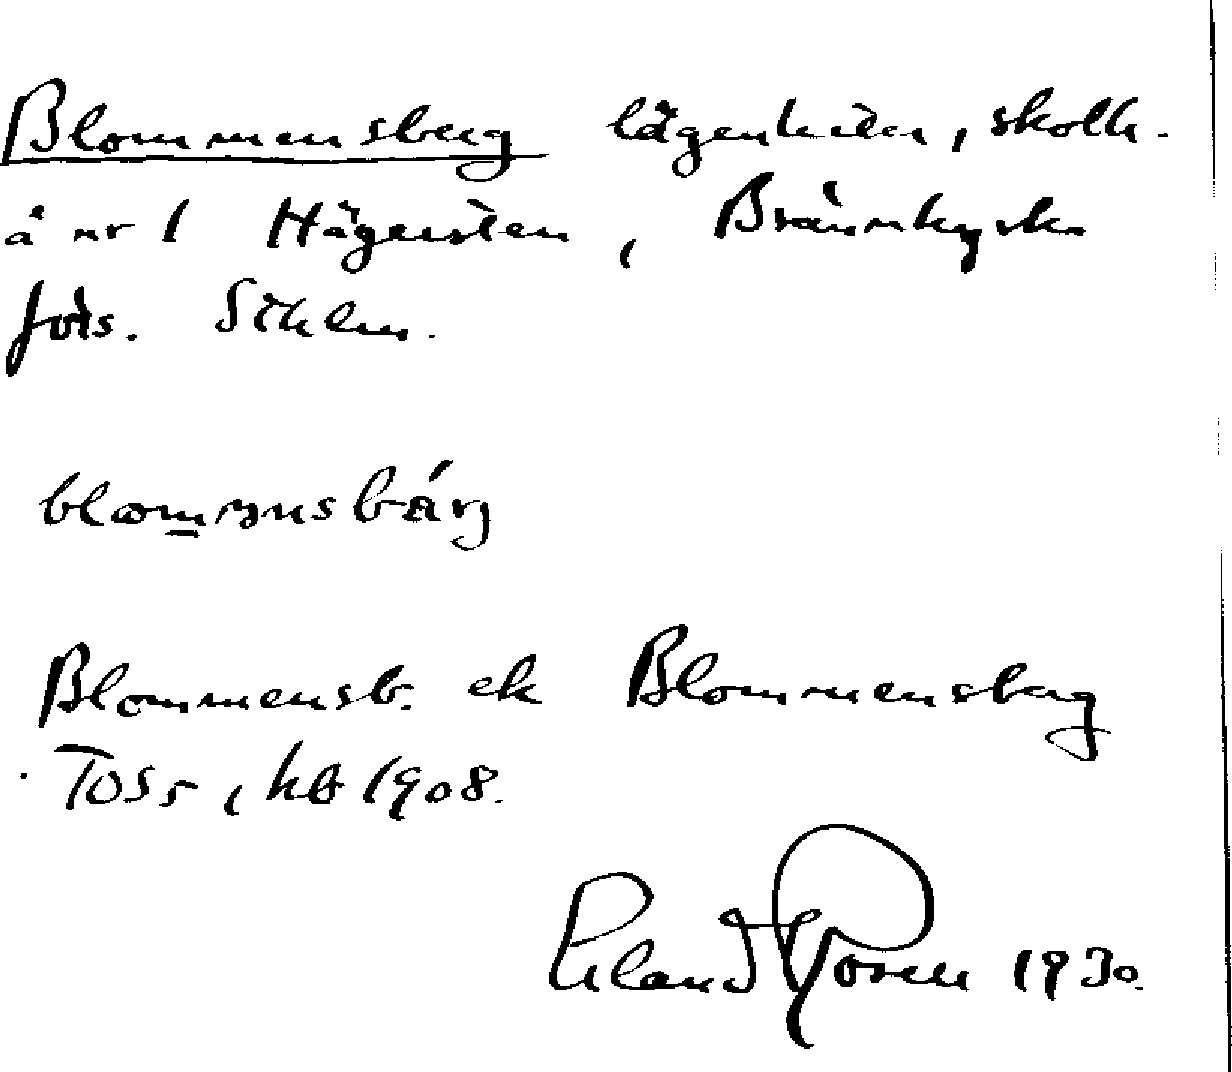 Blommensberg lägenheter, skatteh.
å nr 1 Hägersten, Brännkyrka
förs. Sthlm.
blomənsbárj
Blommensb. ek Blommensberg
TOSr, kb 1908.
Erland Rosell 1930.